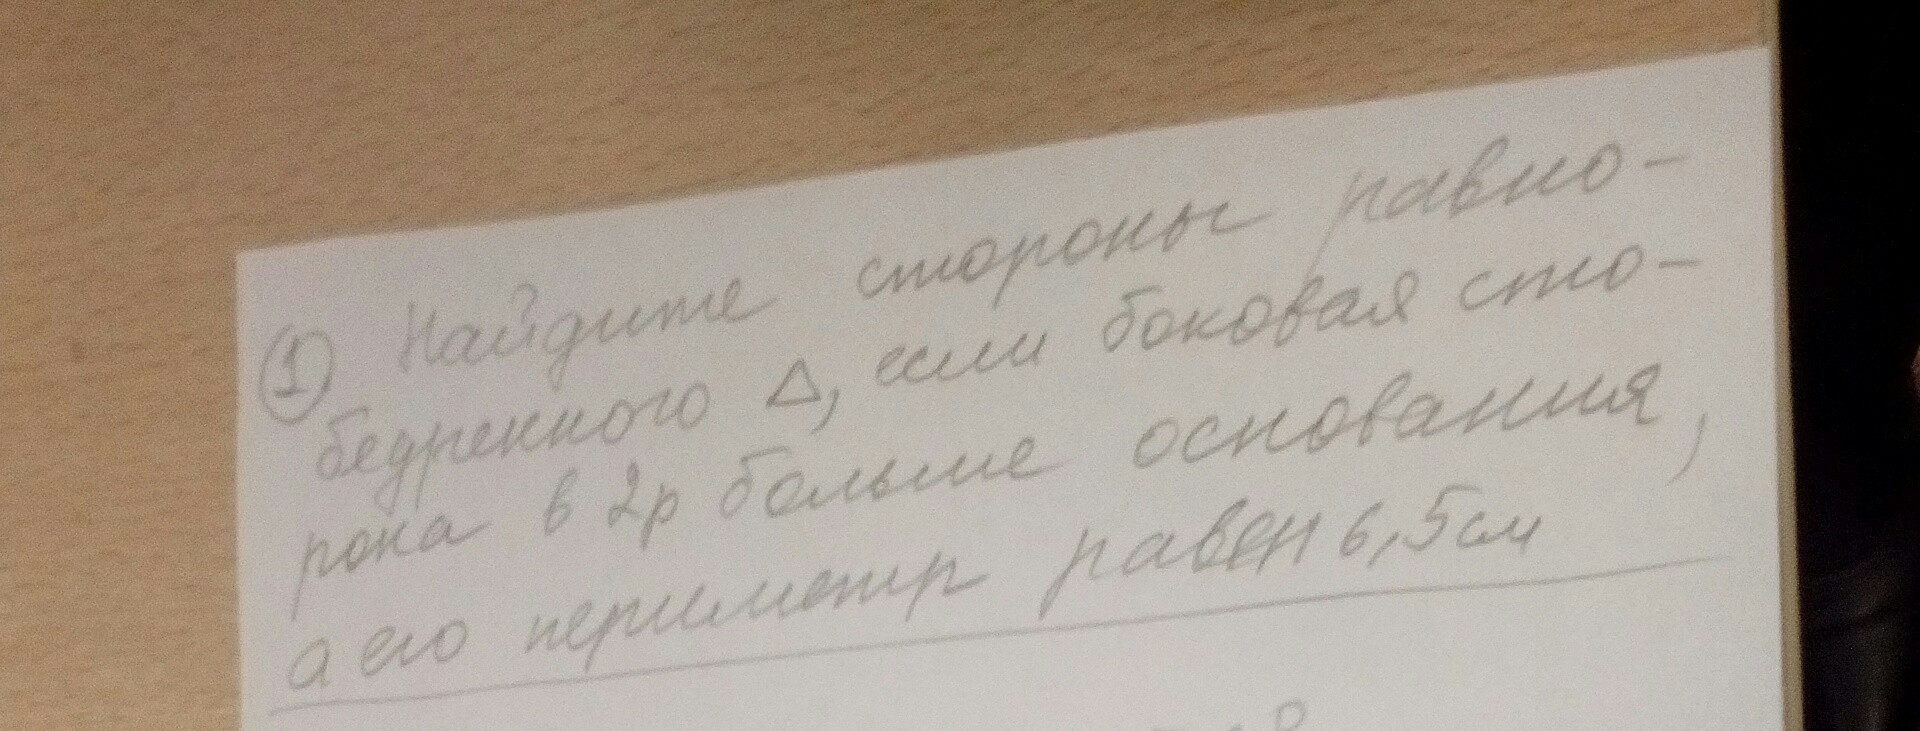 ① Найдите стороны равно-
бедренного △, если боковая сто-
рона в 2р больше основания,
а его периметр равен 6,5см